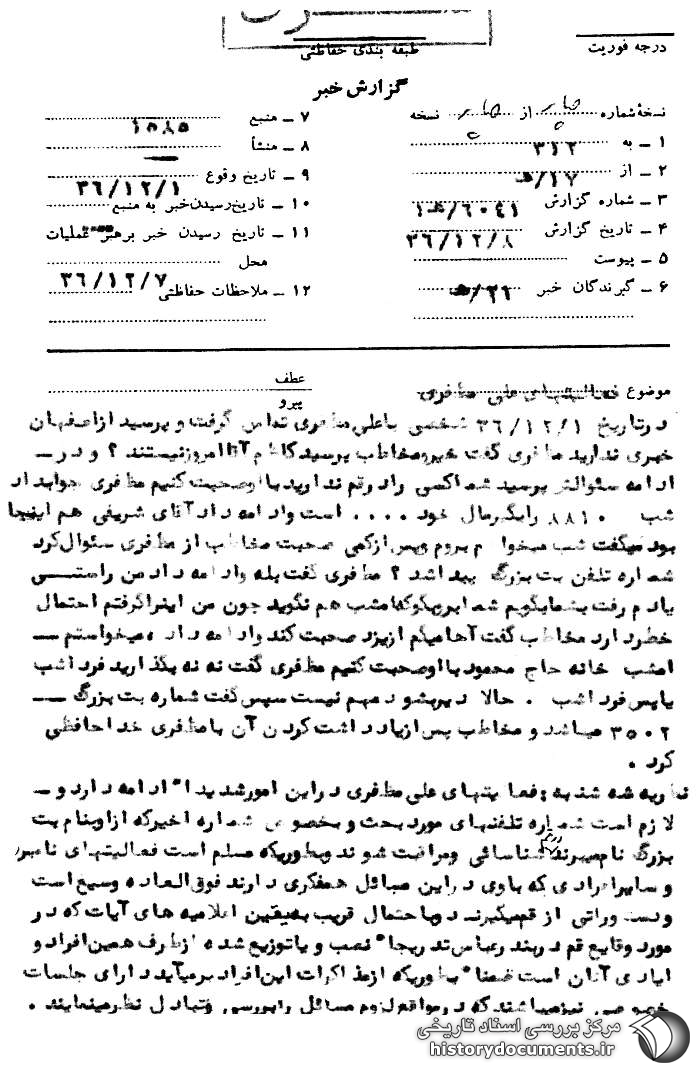 درجه فوریت
طبقه بندی حفاظتی
گزارش خبر
نسخهٔ شماره چهار از چهار نسخه
۱ ـ به ۳۱۲
۲ ـ از ۱۷/ﻫ
۳ ـ شماره گزارش ۶۰۴۱/ﻫ۱
۴ ـ تاریخ گزارش ۳۶/۱۲/۸
۵ ـ پیوست
۶ ـ گیرندگان خبر ۲۲/ﻫ
۷ ـ منبع ۱۵۸۵
۸ ـ منشأ
۹ ـ تاریخ وقوع ۳۶/۱۲/۱
۱۰ ـ تاریخ رسیدن خبر به منبع
۱۱ ـ تاریخ رسیدن خبر برهبر عملیات
محل ۳۶/۱۲/۷
۱۲ ـ ملاحظات حفاظتی
موضوع فعالیتهای علی مظفری
عطف
پیرو
در تاریخ ۳۶/۱۲/۱ شخصی با علی مظفری تماس گرفت و پرسید از اصفهان
خبری ندارید مظفری گفت خیر و مخاطب پرسید کاظم آقا امروز نیستند ؟ و در ــ
ادامه سئوالش پرسید شما کسی را در قم ندارید با او صحبت کنیم مظفری جوابداد
شب ۸۸۱۰ را بگیر مال خود .... است و ادامه داد آقای شریفی هم اینجا
بود میگفت شب میخواهم بروم و پس از کمی صحبت مخاطب از مظفری سئوال کرد
شماره تلفن بت بزرگ پیدا شد ؟ مظفری گفت بله و ادامه داد من راستــی
یادم رفت بشما بگویم شما بریکوکها مشب هم نگوید چون من اینرا گرفتم احتمال
خطر دارد مخاطب گفت آها میگم از یزد صحبت کند و ادامه داد ه میخواستم ــ
امشب خانه حاج محمود با او صحبت کنیم مظفری گفت نه نه بگذارید فردا شب
یا پس فردا شب . حالا دیر بشود مهم نیست سپس گفت شماره بت بزرگ ــ
۳۵۰۲ میباشد و مخاطب پس از یادداشت کردن آن با مظفری خداحافظی
کرد .
نظریه شنبه : فعالیتهای علی مظفری در این امور شدیدا" ادامه دارد و ــ
لازم است شماره تلفنهای مورد بحث و بخصوص شماره اخیر که از او بنام بت
بزرگ نام میبرند در قم شناسائی و مراقبت شوند و بطوریکه مسلم است فعالیتهای نامبرده
و سایر افرادی که با وی در این مسائل همفکری دارند فوق العاده وسیع است
و دستوراتی از قم میگیرند و با احتمال قریب به یقین اعلامیه های آیات که در
مورد وقایع قم در بندرعباس تدریجا" نصب و یا توزیع شده از طرف همین افراد و
ایادی آنان است ضمنا" بطوریکه از مذاکرات این افراد بر میآید دارای جلسات
خصوصی نیز میباشند که در مواقع لزوم مسائل را بررسی و تبادل نظر مینمایند .
مرکز بررسی اسناد تاریخی
historydocuments.ir